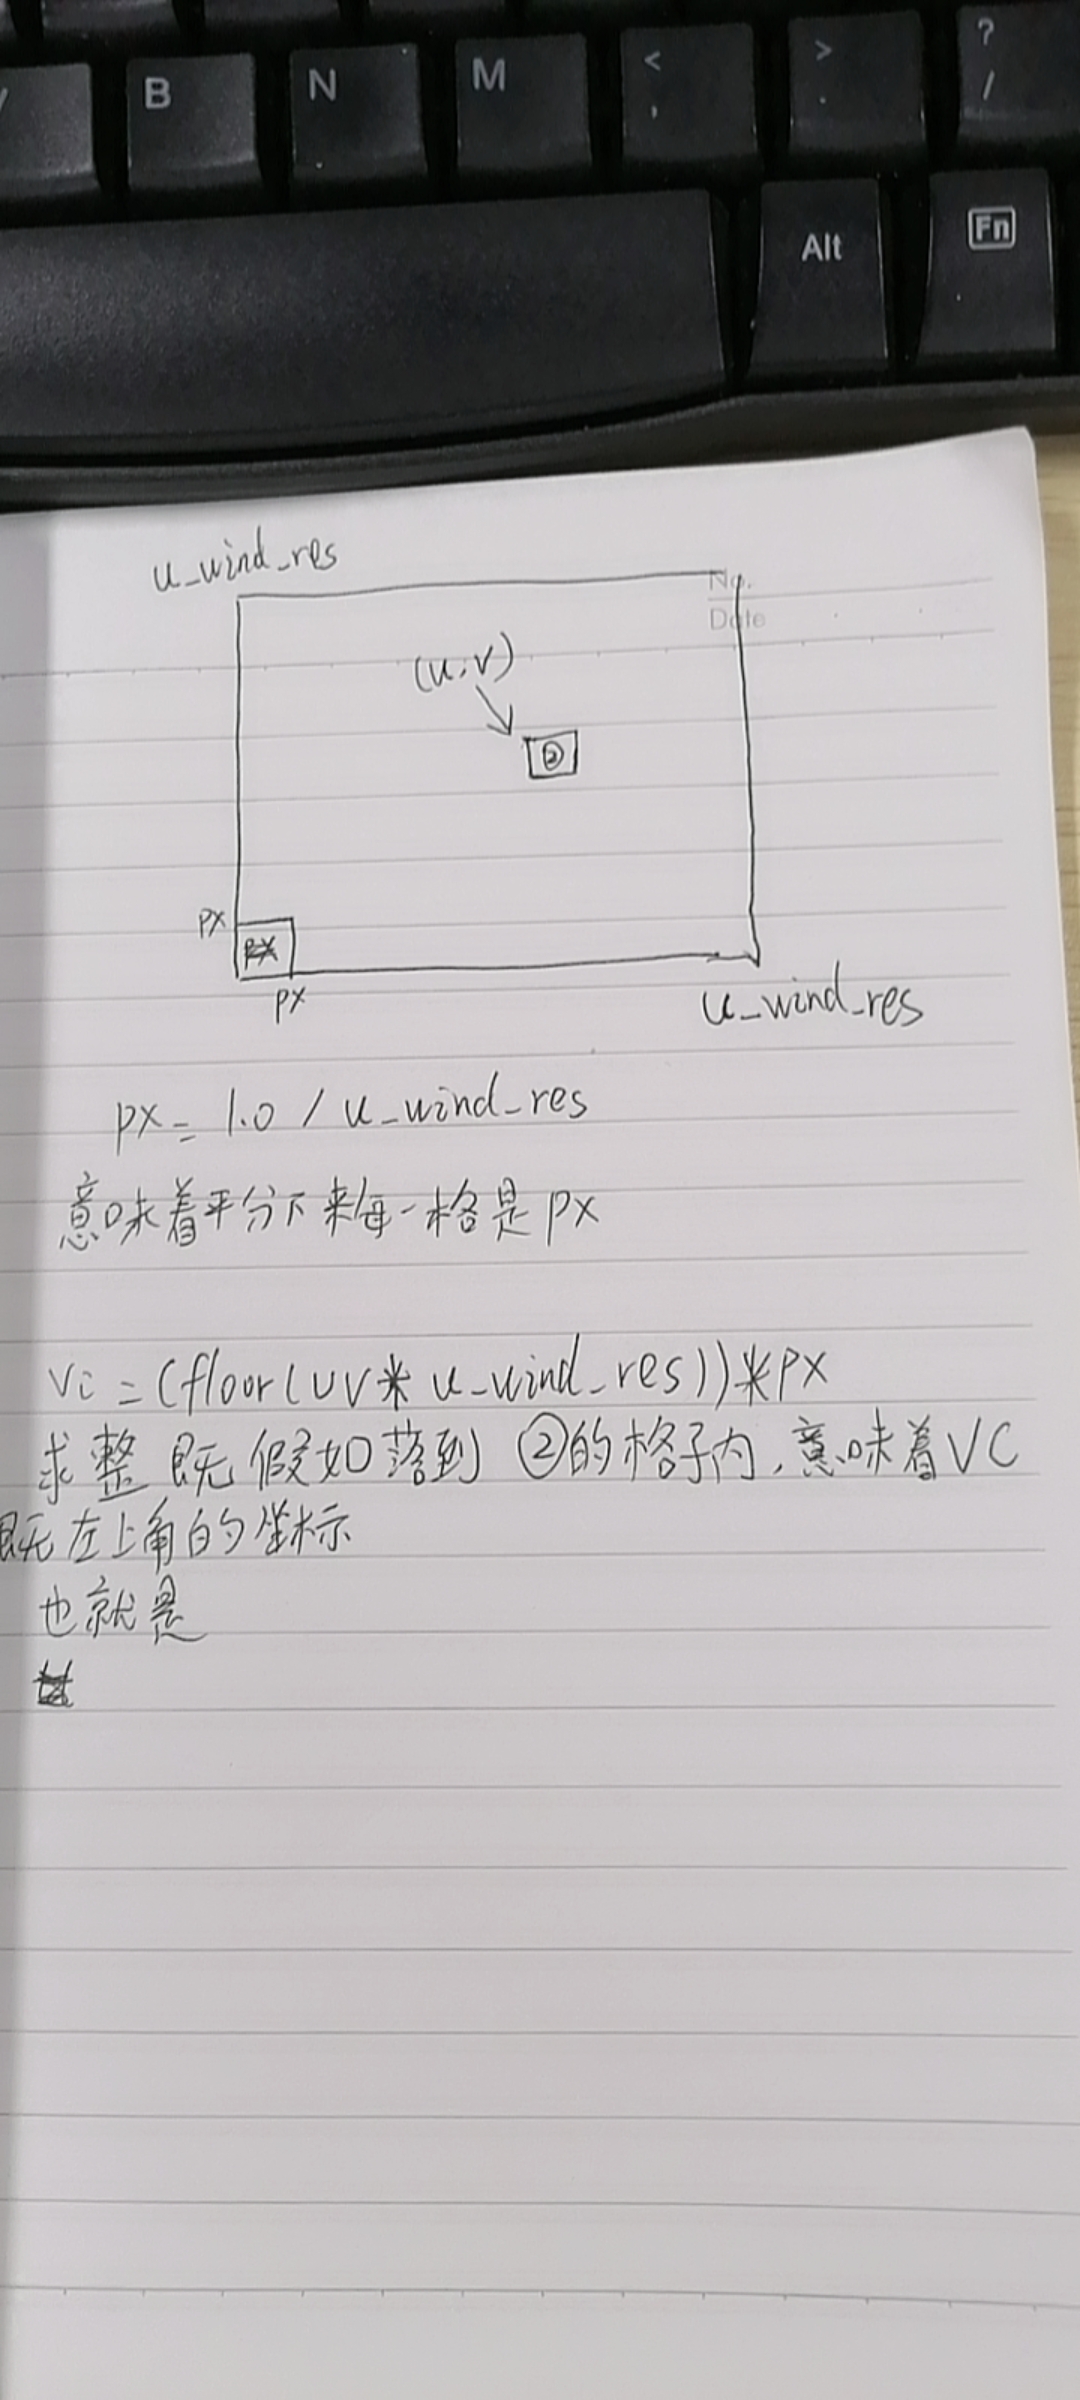 B N M < ,
> .
? /
Alt Fn
u_wind_res
No.
Date
(u,v)
②
px
px
px
u_wind_res
px = 1.0 / u_wind_res
意味着平分下来每一格是px
vc = (floor(uv* u_wind_res))*px
求整 既假如落到 ②的格子内,意味着VC
既左上角的坐标
也就是